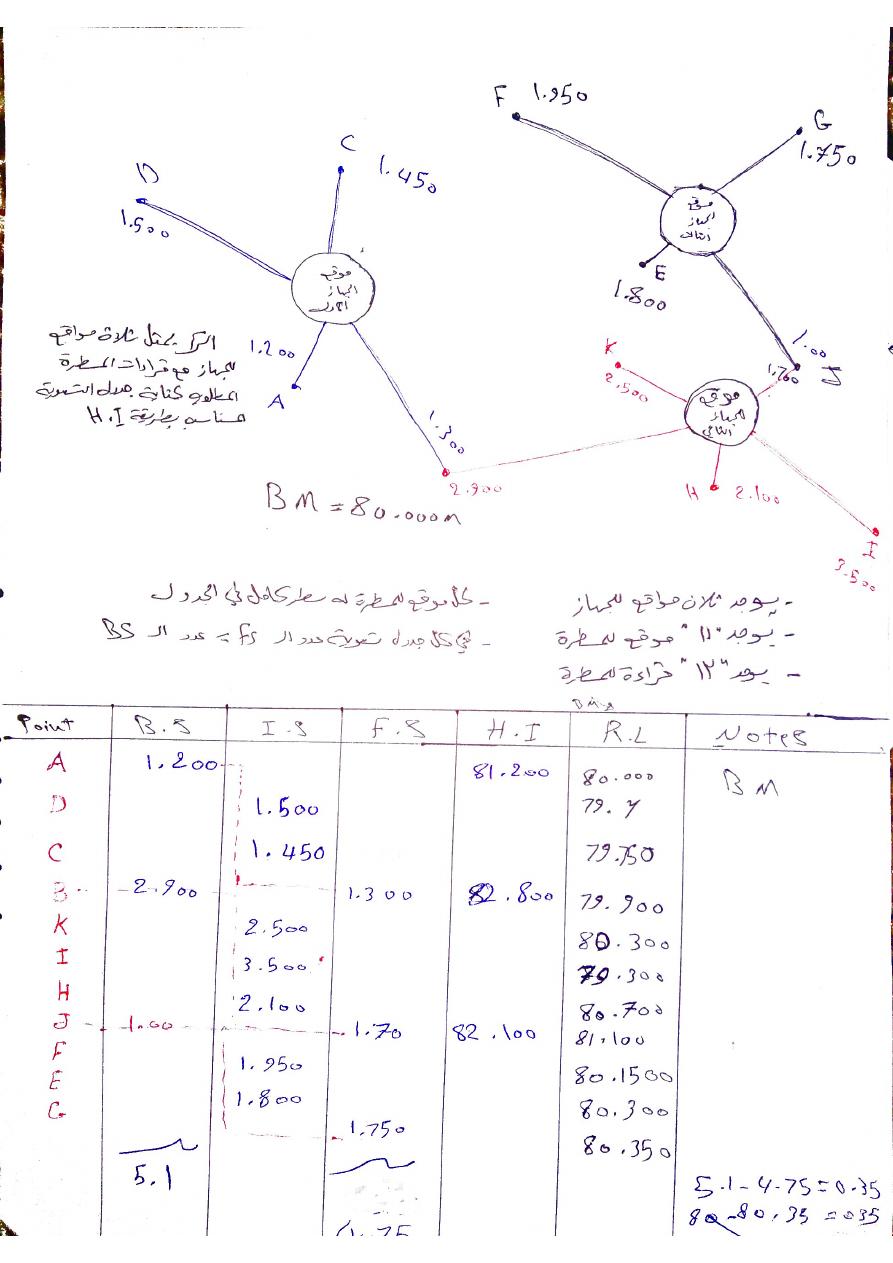 F 1.950
G
1.750
C
1.450
D
1.500
موقع
الجهاز
الثالث
E
1.800
موقع
الجهاز
الاول
1.200
A
1.300
1.00
1.700
J
K
2.500
موقع
الجهاز
الثاني
2.900
H 2.100
I
3.500
يمثل ثلاثة مواقع
للجهاز مع قراءات المسطرة
المطلوب كتابة جدول التسوية
بطريقة H.I
BM = 80.000m
- يوجد ثلاث مواقع للجهاز
- يوجد "١١" موقع للمسطرة
- يوجد "١٢" قراءة للمسطرة
- كل موقع للمسطرة له سطر كامل في الجدول
- في كل جدول تسوية عدد الـ fs = عدد الـ BS
Point B.S I.S F.S H.I R.L Notes
A 1.200 81.200 80.000 BM
D 1.500 79.7
C 1.450 79.750
B 2.900 1.300 82.800 79.900
K 2.500 80.300
I 3.500 79.300
H 2.100 80.700
J 1.00 1.70 82.100 81.100
F 1.950 80.1500
E 1.800 80.300
G 1.750 80.350
5.1
4.75
5.1-4.75=0.35
80-80.35=035